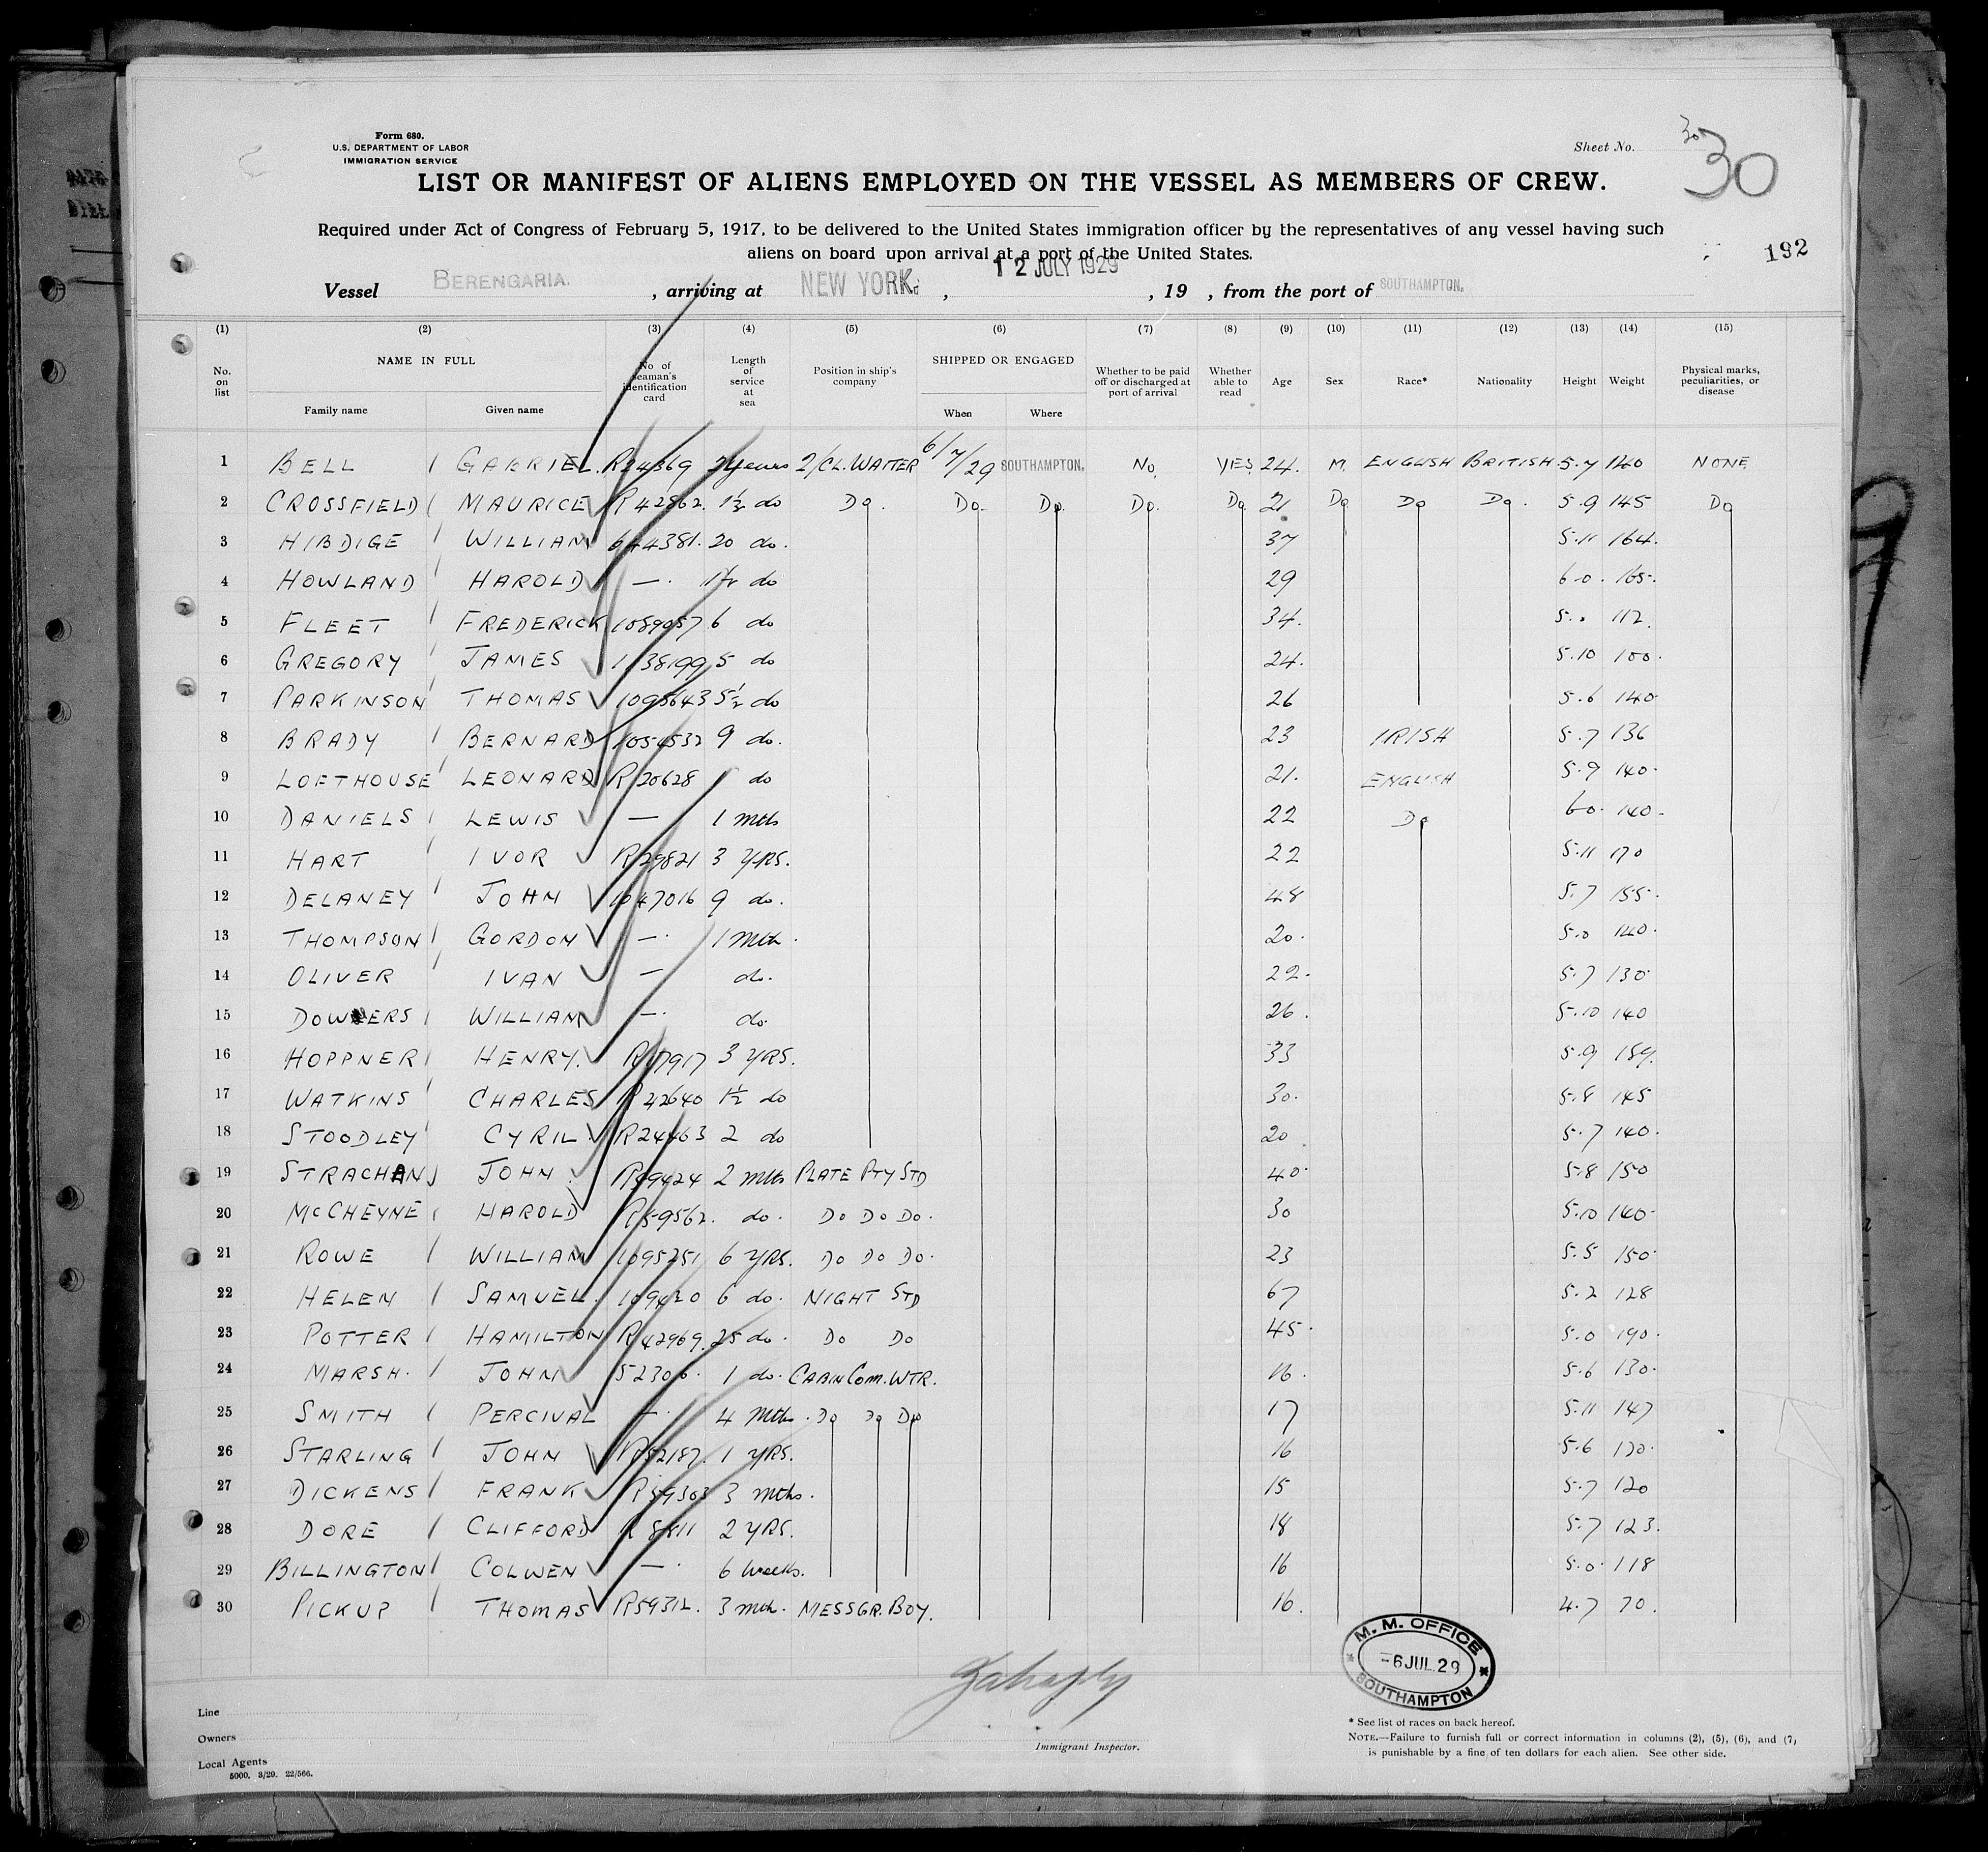 Form 680.
U.S. DEPARTMENT OF LABOR
IMMIGRATION SERVICE
Sheet No. 30
30
LIST OR MANIFEST OF ALIENS EMPLOYED ON THE VESSEL AS MEMBERS OF CREW.
Required under Act of Congress of February 5, 1917, to be delivered to the United States immigration officer by the representatives of any vessel having such
aliens on board upon arrival at a port of the United States.
192
12 JULY 1929
Vessel BERENGARIA. , arriving at NEW YORK. , , 19 , from the port of SOUTHAMPTON.
(1) (2) (3) (4) (5) (6) (7) (8) (9) (10) (11) (12) (13) (14) (15)
No. on list NAME IN FULL Family name Given name No. of seaman's identification card Length of service at sea Position in ship's company SHIPPED OR ENGAGED When Where Whether to be paid off or discharged at port of arrival Whether able to read Age Sex Race* Nationality Height Weight Physical marks, peculiarities, or disease
1 BELL GABRIEL. R24369 2 years 2/CL. WAITER 6/7/29 SOUTHAMPTON. No. YES. 24. M. ENGLISH BRITISH. 5.7 140 NONE
2 CROSSFIELD MAURICE R42862. 1½ do Do. Do. Do. Do. Do. 21 Do Do Do. 5.9 145 Do
3 HIBDIGE WILLIAM 644381. 20 do. 37 5.11 164.
4 HOWLAND HAROLD —. 1½ do 29 6.0. 165.
5 FLEET FREDERICK 1089057 6 do 34. 5.. 112.
6 GREGORY JAMES 1138199 5 do 24. 5.10 100.
7 PARKINSON THOMAS 1095643 5½ do 26 5.6 140
8 BRADY BERNARD 1054532 9 do. 23 IRISH 5.7 136
9 LOFTHOUSE LEONARD R20628 1 do 21. ENGLISH 5.9 140.
10 DANIELS LEWIS — 1 Mth 22 Do 6.0. 140.
11 HART IVOR R29821 3 YRS. 22 5.11 170
12 DELANEY JOHN 1047016 9 do. 48 5.7 155.
13 THOMPSON GORDON —. 1 Mth. 20. 5.0 140.
14 OLIVER IVAN — do. 22. 5.7 130
15 DOWNERS WILLIAM —. do. 26. 5.10 140
16 HOPPNER HENRY. R17917 3 YRS. 33 5.9 189.
17 WATKINS CHARLES R42640 1½ do 30. 5.8 145
18 STOODLEY CYRIL R24463 2 do 20 5.7 140.
19 STRACHAN JOHN R59424 2 Mths PLATE PTY STD 40. 5.8 150
20 McCHEYNE HAROLD R59562. do. Do Do Do. 30 5.10 140.
21 ROWE WILLIAM 1095251 6 YRS. Do Do Do. 23 5.5 150.
22 HELEN SAMUEL. 109420 6 do. NIGHT STD 67 5.2 128
23 POTTER HAMILTON R42969. 25 do. Do Do 45. 5.0 190.
24 MARSH. JOHN 52306. 1 do. CABIN COM. WTR. 16. 5.6 130.
25 SMITH PERCIVAL —. 4 Mths. Do Do Do 17 5.11 147
26 STARLING JOHN R52187. 1 YRS. 16 5.6 130.
27 DICKENS FRANK R59303 3 Mths. 15 5.7 120
28 DORE CLIFFORD 2 YRS. 18 5.7 123.
29 BILLINGTON COLWEN —. 6 Weeks. 16 5.0. 118
30 PICKUP THOMAS R59312. 3 Mth. MESSGR. BOY. 16. 4.7 70.
M. M. OFFICE
-6 JUL. 29
SOUTHAMPTON
Line
Owners
Local Agents
5000. 3/29. 22/566.
Immigrant Inspector.
* See list of races on back hereof.
NOTE.—Failure to furnish full or correct information in columns (2), (5), (6), and (7,
is punishable by a fine of ten dollars for each alien. See other side.